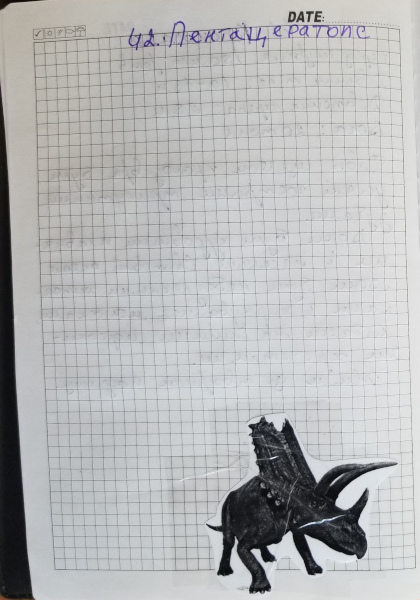 DATE:
42. Пентацератопс